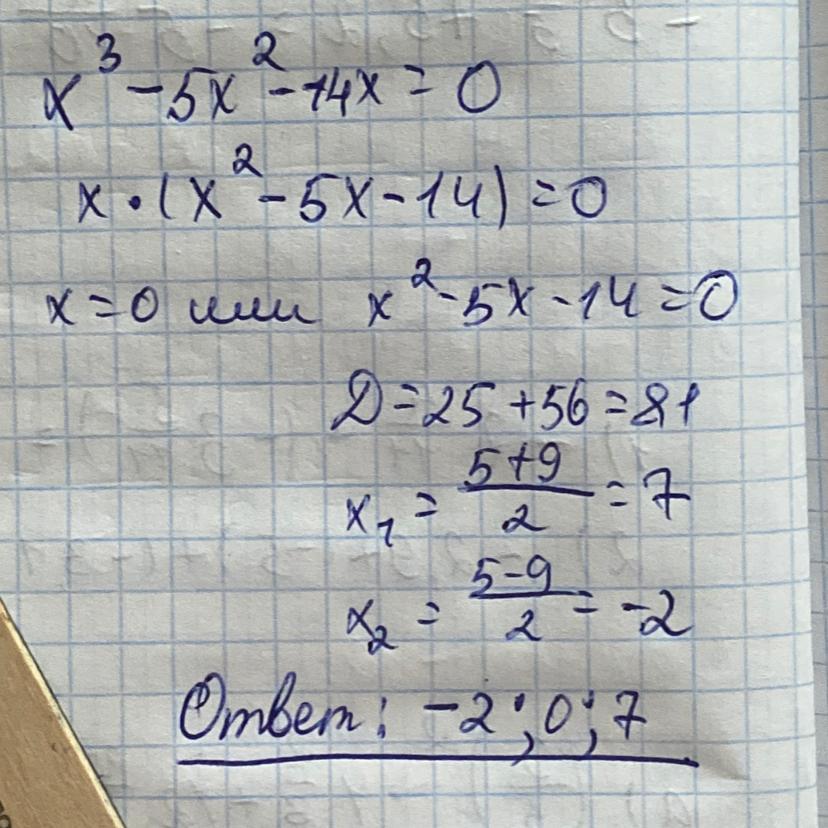 x³ - 5x² - 14x = 0
x · (x² - 5x - 14) = 0
x = 0 или x² - 5x - 14 = 0
D = 25 + 56 = 81
x₁ = (5+9)/2 = 7
x₂ = (5-9)/2 = -2
Ответ: -2; 0; 7